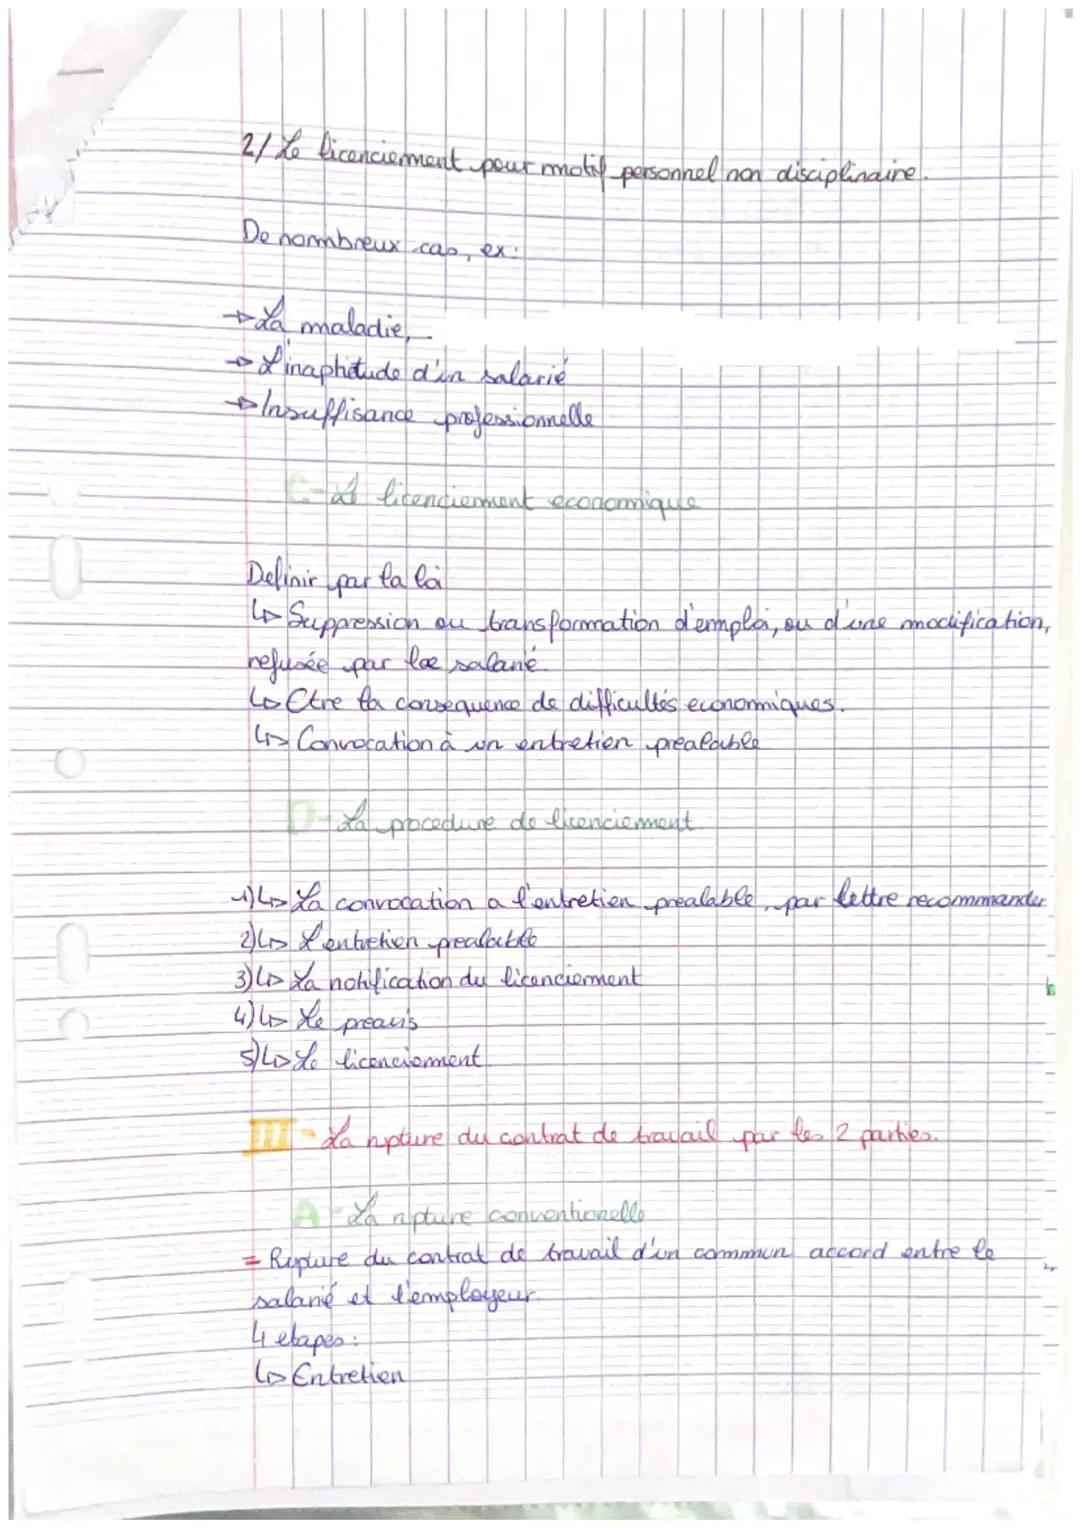 2/ Le licenciement pour motif personnel non disciplinaire.
De nombreux cas, ex:
→ La maladie,
→ L'inaphitude d'un salarié
→ Insuffisance professionnelle
C - Le licenciement economique
Definir par la loi
↳ Suppression ou transformation d'emploi, ou d'une modification,
refusée par le salarié.
↳ Etre la consequence de difficultés economiques.
↳ Convocation à un entretien prealable
D - La procedure de licenciement.
1) ↳ La convocation a l'entretien prealable, par lettre recommander
2) ↳ L'entretien prealable
3) ↳ La notification du licenciement
4) ↳ Le preavis
5) ↳ Le licenciement.
III - La rupture du contrat de travail par les 2 parties.
A - La rupture conventionelle
= Rupture du contrat de travail d'un commun accord entre le
salarié et l'employeur
4 etapes:
↳ Entretien